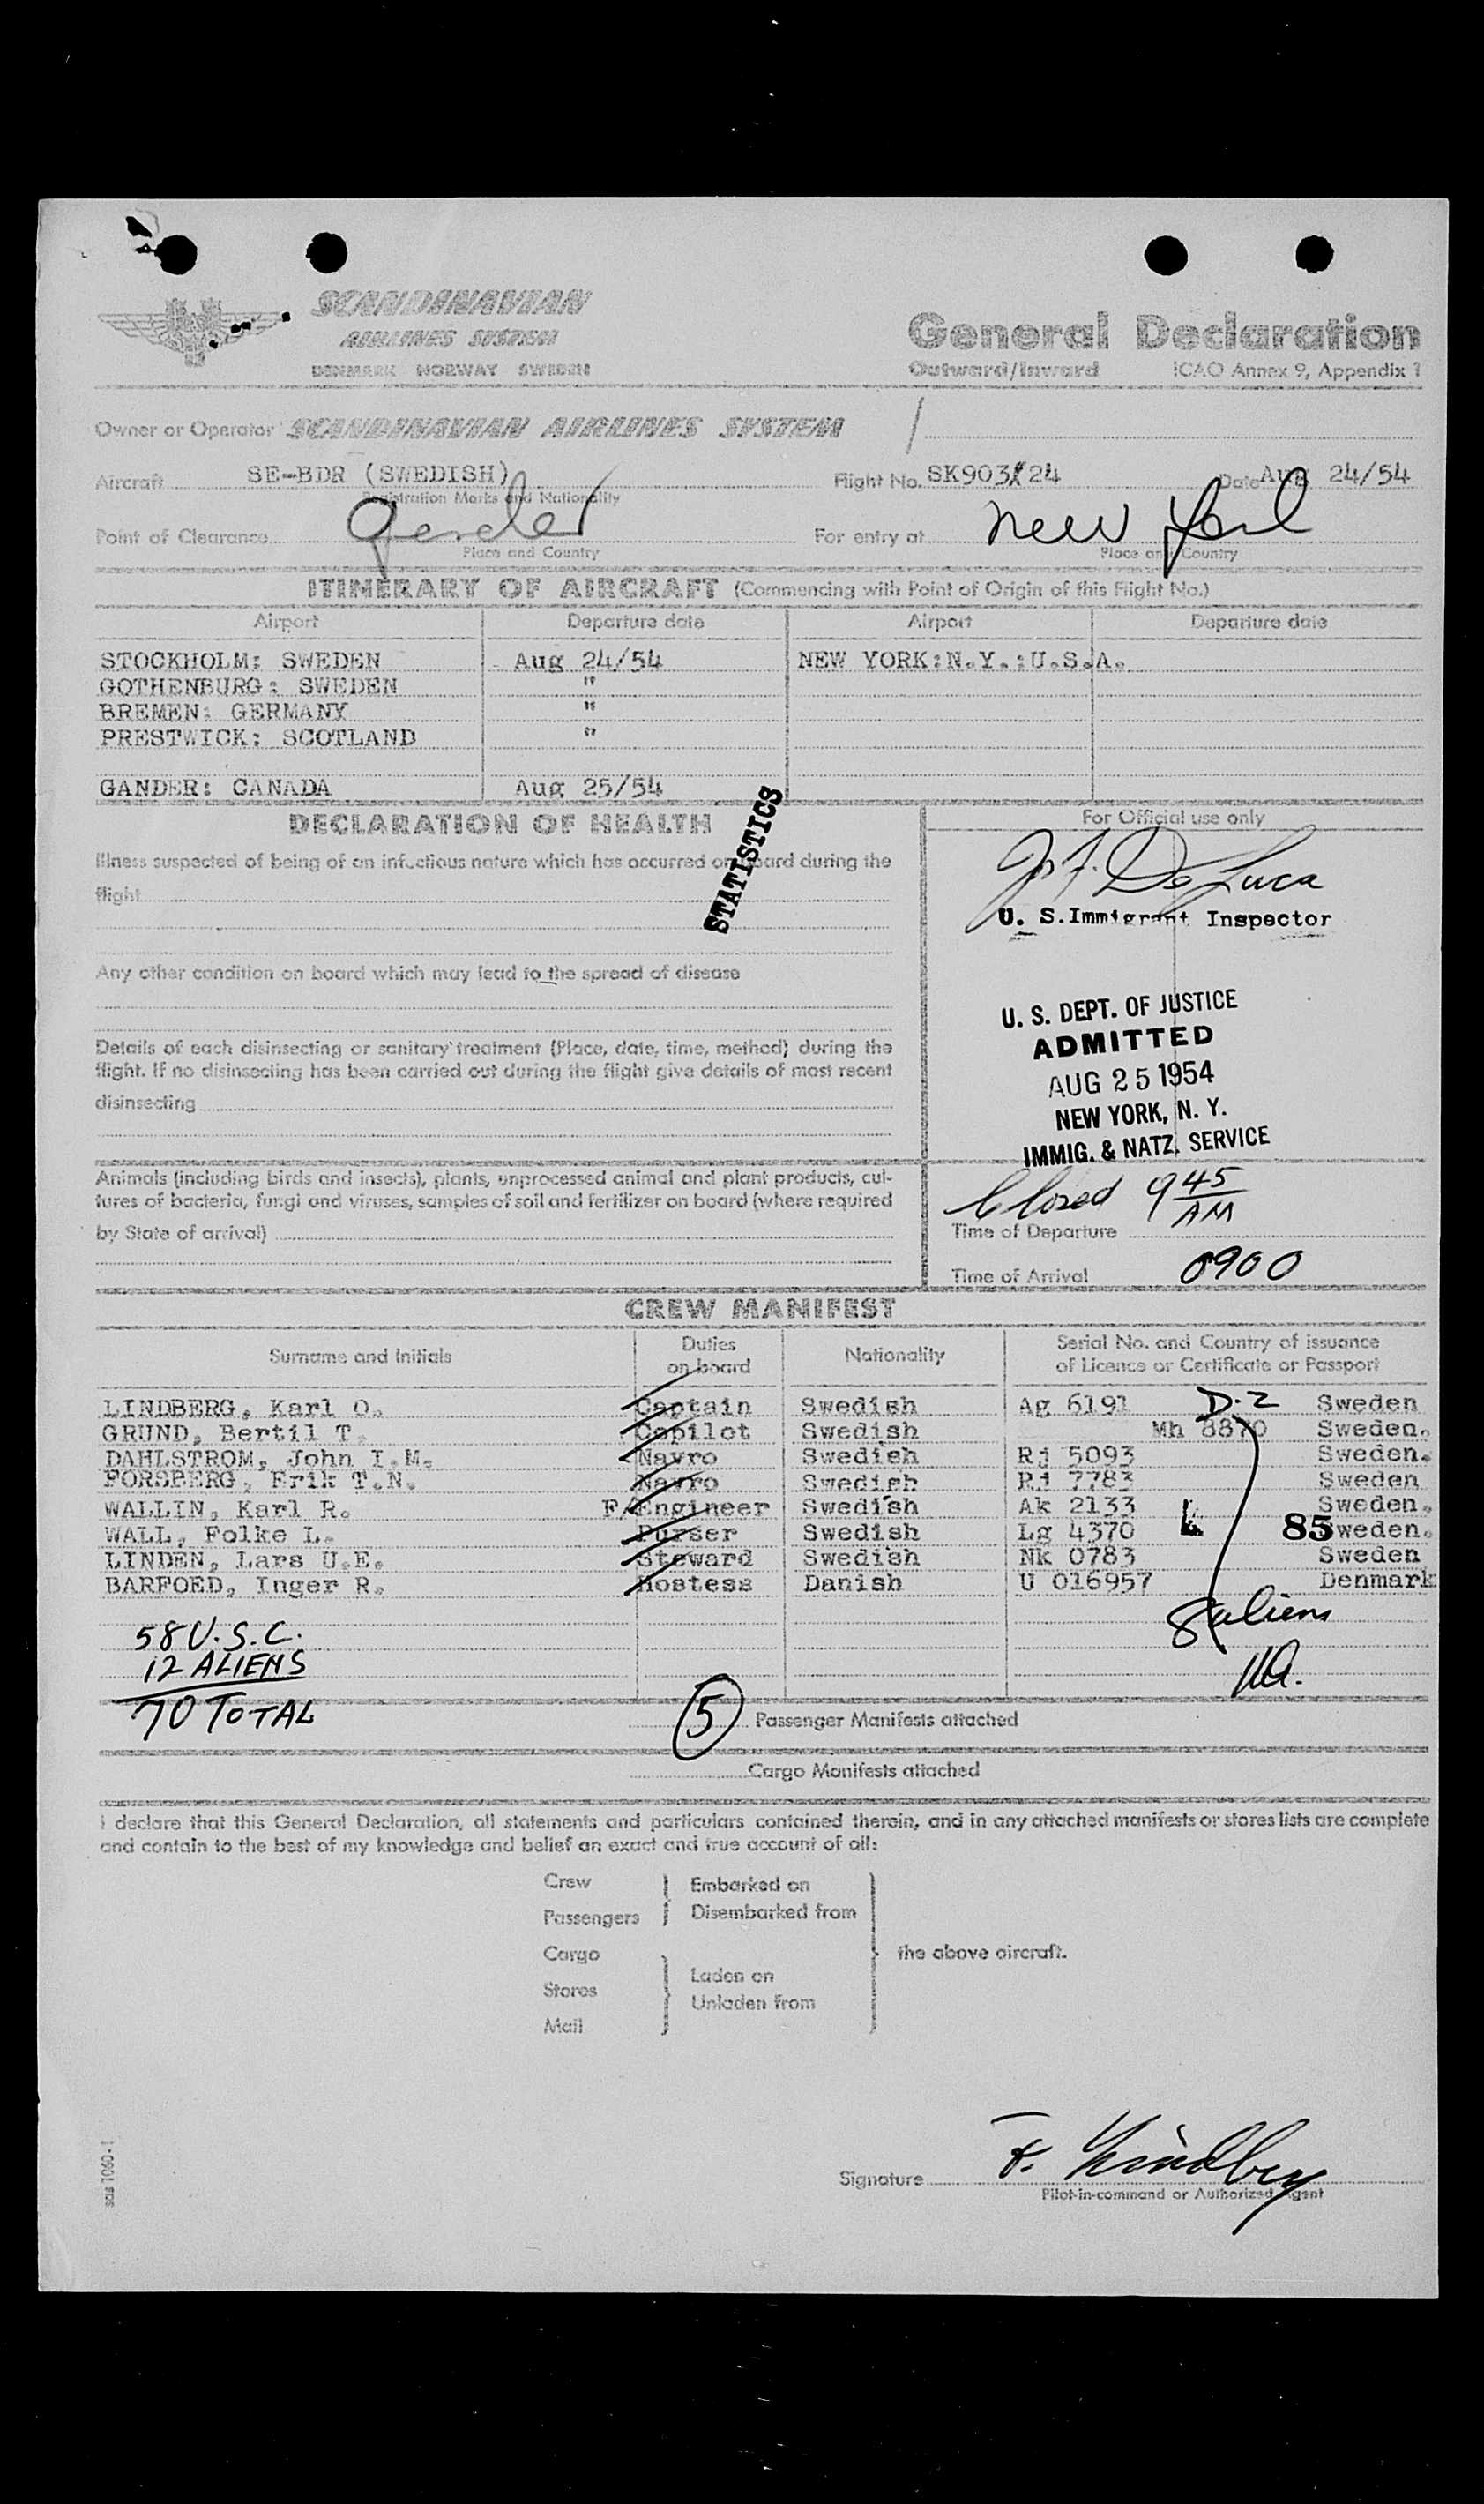 SCANDINAVIAN
AIRLINES SYSTEM
DENMARK NORWAY SWEDEN
General Declaration
Outward/Inward ICAO Annex 9, Appendix 1
Owner or Operator SCANDINAVIAN AIRLINES SYSTEM
Aircraft SE-BDR (SWEDISH) Flight No. SK903/24 Date Aug 24/54
Registration Marks and Nationality
Point of Clearance Gander For entry at New York
Place and Country Place and Country
ITINERARY OF AIRCRAFT (Commencing with Point of Origin of this Flight No.)
Airport Departure date Airport Departure date
STOCKHOLM: SWEDEN Aug 24/54 NEW YORK:N.Y.:U.S.A.
GOTHENBURG: SWEDEN "
BREMEN: GERMANY "
PRESTWICK: SCOTLAND "
GANDER: CANADA Aug 25/54
STATISTICS
DECLARATION OF HEALTH
Illness suspected of being of an infectious nature which has occurred on board during the
flight
Any other condition on board which may lead to the spread of disease
Details of each disinsecting or sanitary treatment (Place, date, time, method) during the
flight. If no disinsecting has been carried out during the flight give details of most recent
disinsecting
Animals (including birds and insects), plants, unprocessed animal and plant products, cul-
tures of bacteria, fungi and viruses, samples of soil and fertilizer on board (where required
by State of arrival)
For Official use only
De Luca
U. S. Immigrant Inspector
U. S. DEPT. OF JUSTICE
ADMITTED
AUG 25 1954
NEW YORK, N. Y.
IMMIG. & NATZ. SERVICE
Closed 9 45 AM
Time of Departure
Time of Arrival 0900
CREW MANIFEST
Surname and Initials Duties on board Nationality Serial No. and Country of issuance of Licence or Certificate or Passport
LINDBERG, Karl O. Captain Swedish Ag 6191 D-2 Sweden
GRUND, Bertil T. Copilot Swedish Mh 8870 Sweden.
DAHLSTROM, John I.M. Navro Swedish Rj 5093 Sweden.
FORSBERG, Erik T.N. Navro Swedish Rj 7783 Sweden
WALLIN, Karl R. F/Engineer Swedish Ak 2133 Sweden.
WALL, Folke L. Purser Swedish Lg 4370 85 Sweden.
LINDEN, Lars U.E. Steward Swedish Nk 0783 Sweden
BARFOED, Inger R. Hostess Danish U 016957 Denmark
8 aliens
58 U.S.C.
12 ALIENS
70 TOTAL
5 Passenger Manifests attached
Cargo Manifests attached
I declare that this General Declaration, all statements and particulars contained therein, and in any attached manifests or stores lists are complete
and contain to the best of my knowledge and belief an exact and true account of all:
Crew Embarked on
Passengers Disembarked from
Cargo the above aircraft.
Stores Laden on
Unladen from
Mail
Signature Lindberg
Pilot-in-command or Authorized Agent
sas 1060-1